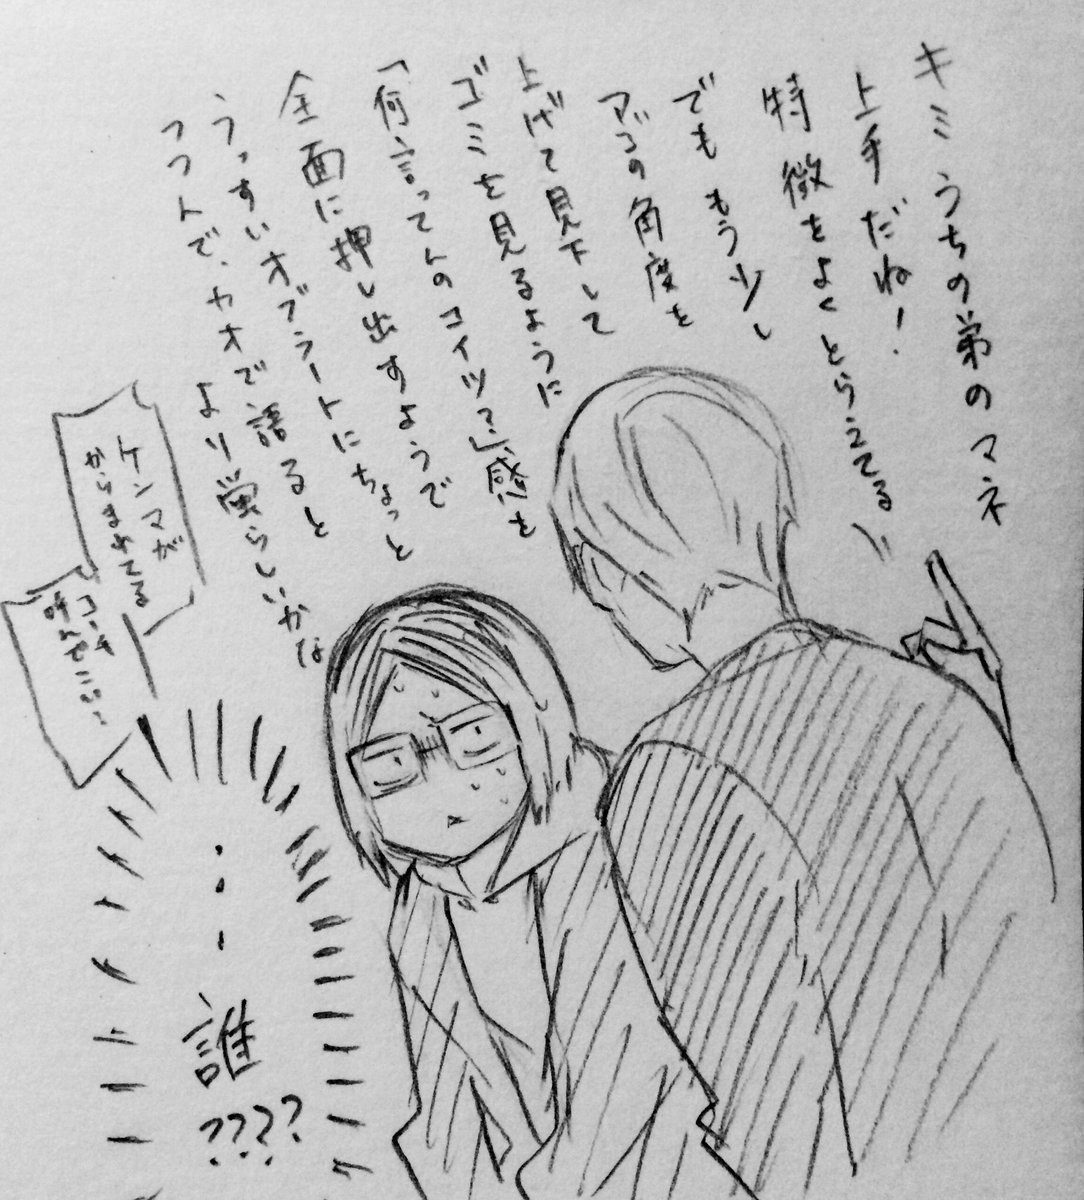 キミうちの弟のマネ
上手だね!
特徴をよくとらえてる
でももう少し
アゴの角度を
上げて見下して
ゴミを見るように
「何言ってんのコイツ?」感を
全面に押し出すようで
うっすいオブラートにちょっと
つつんで、カオで語ると
より蛍らしいかな
ケンマが
からまれてる
コーチ
呼んでこい!
・・・誰
????